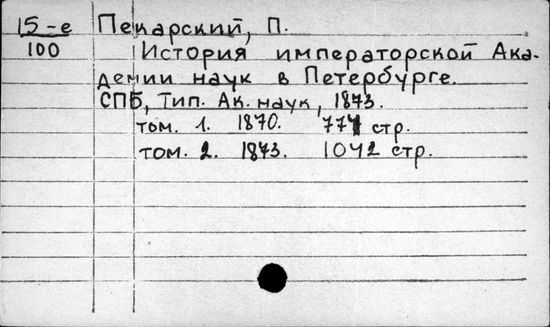 15-е Пекарский, П.
100 История императорской Ака-
демии наук в Петербурге.
СПБ, Тип. Ак. наук, 1873.
том. 1. 1870. 774 стр.
том. 2. 1873. 1042 стр.